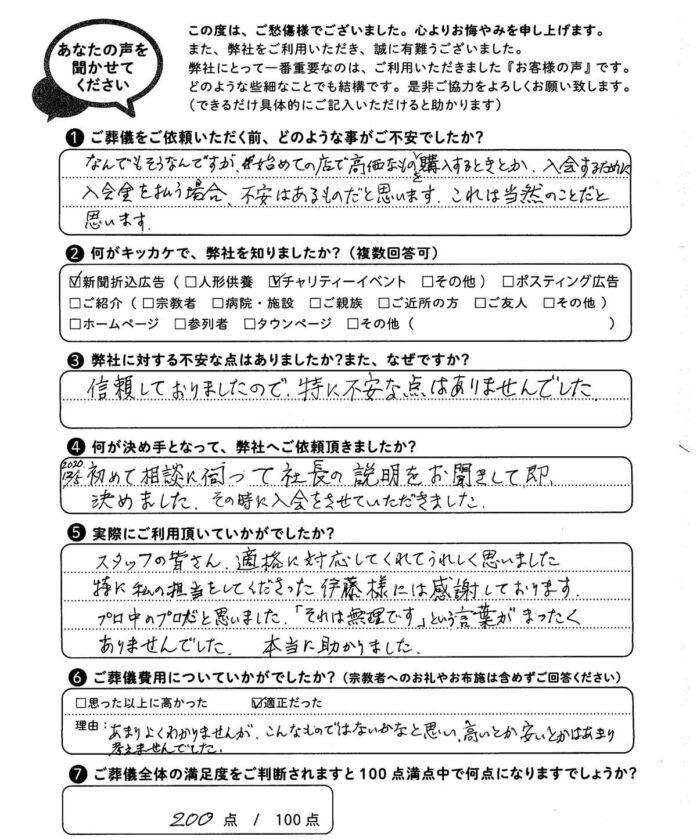 あなたの声を
聞かせて
ください
この度は、ご愁傷様でございました。心よりお悔やみを申し上げます。
また、弊社をご利用いただき、誠に有難うございました。
弊社にとって一番重要なのは、ご利用いただきました『お客様の声』です。
どのような些細なことでも結構です。是非ご協力をよろしくお願い致します。
(できるだけ具体的にご記入いただけると助かります)
❶ ご葬儀をご依頼いただく前、どのような事がご不安でしたか?
なんでもそうなんですが、始めての店で高価なものを購入するときとか、入会するために
入会金を払う場合、不安はあるものだと思います。これは当然のことだと
思います.
❷ 何がキッカケで、弊社を知りましたか?(複数回答可)
☑新聞折込広告(□人形供養 ☑チャリティーイベント □その他) □ポスティング広告
□ご紹介(□宗教者 □病院・施設 □ご親族 □ご近所の方 □ご友人 □その他)
□ホームページ □参列者 □タウンページ □その他( )
❸ 弊社に対する不安な点はありましたか?また、なぜですか?
信頼しておりましたので、特に不安な点はありませんでした.
❹ 何が決め手となって、弊社へご依頼頂きましたか?
2020
12/5 初めて相談に伺って社長の説明をお聞きして、即、
決めました. その時に入会をさせていただきました.
❺ 実際にご利用頂いていかがでしたか?
スタッフの皆さん、適格に対応してくれてうれしく思いました
特に私の担当をしてくださった伊藤様には感謝しております.
プロ中のプロだと思いました.「それは無理です」という言葉がまったく
ありませんでした. 本当に助かりました.
❻ ご葬儀費用についていかがでしたか?(宗教者へのお礼やお布施は含めずご回答ください)
□思った以上に高かった ☑適正だった
理由:あまりよくわかりませんが、こんなものではないかなと思い、高いとか安いとかはあまり
考えませんでした.
❼ ご葬儀全体の満足度をご判断されますと100点満点中で何点になりますでしょうか?
200 点 / 100点